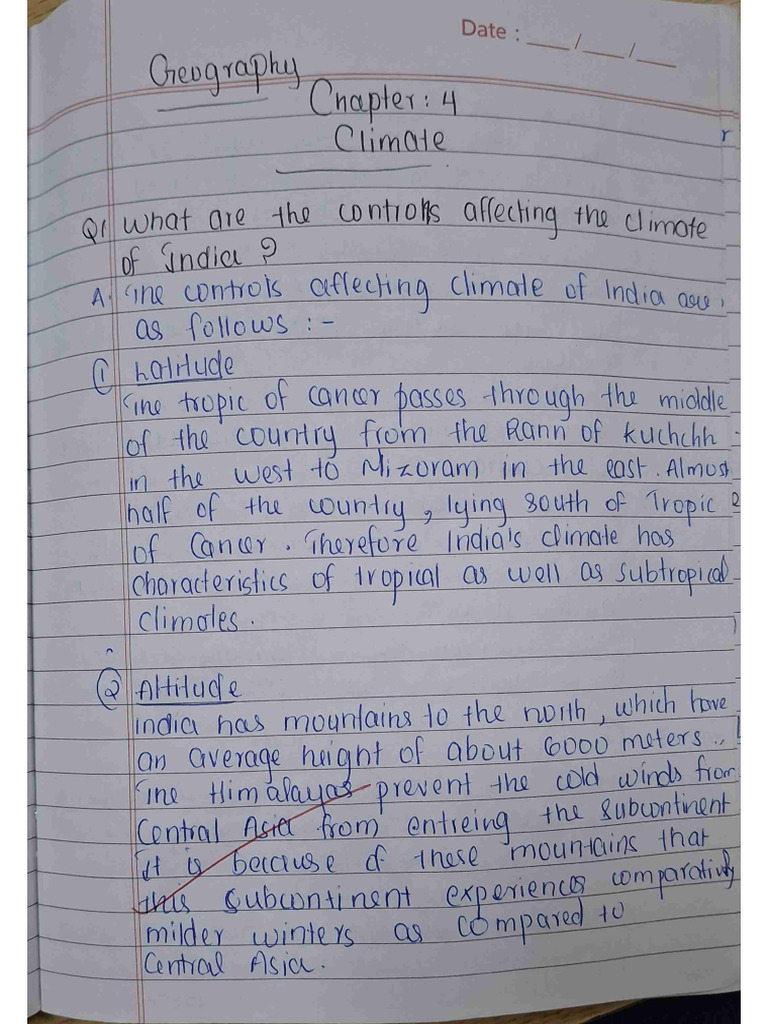 Date : ___/___/___
Geography
Chapter: 4
Climate
Q1 What are the controls affecting the climate
of India ?
A. The controls affecting climate of India are
as follows :-
① Latitude
The tropic of cancer passes through the middle
of the country from the Rann of Kuchchh
in the west to Mizoram in the east. Almost
half of the country, lying south of Tropic
of Cancer. Therefore India's climate has
characteristics of tropical as well as subtropical
climates.
② Altitude
India has mountains to the north, which have
an average height of about 6000 meters.
The Himalayas prevent the cold winds from
Central Asia from entreing the subcontinent
It is because of these mountains that
this subcontinent experiences comparatively
milder winters as compared to
Central Asia.